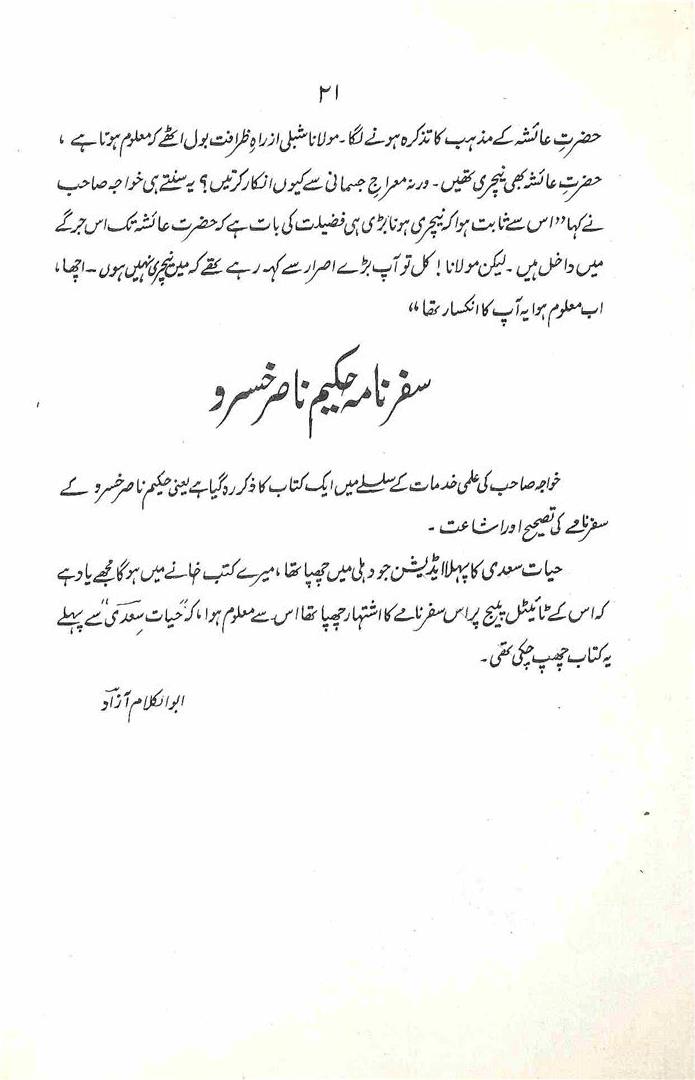 ۲۱
حضرتِ عائشہ کے مذہب کا تذکرہ ہونے لگا۔ مولانا شبلی از راہِ ظرافت بول اٹھے کہ معلوم ہوتا ہے ،
حضرتِ عائشہ بھی نیچری تھیں۔ ورنہ معراجِ جسمانی سے کیوں انکار کرتیں؟ یہ سنتے ہی خواجہ صاحب
نے کہا ”اس سے ثابت ہوا کہ نیچری ہونا بڑی ہی فضیلت کی بات ہے کہ حضرت عائشہ تک اس جرگے
میں داخل ہیں۔ لیکن مولانا! کل تو آپ بڑے اصرار سے کہہ رہے تھے کہ میں نیچری نہیں ہوں — اچھا،
اب معلوم ہوا یہ آپ کا انکسار تھا“
سفر نامہ حکیم ناصر خسرو
خواجہ صاحب کی علمی خدمات کے سلسلے میں ایک کتاب کا ذکر رہ گیا ہے یعنی حکیم ناصر خسرو کے
سفر نامے کی تصحیح اور اشاعت ۔
حیات سعدی کا پہلا اڈیشن جو دہلی میں چھپا تھا، میرے کتب خانے میں ہوگا مجھے یاد ہے
کہ اس کے ٹائیٹل پیج پر اس سفر نامے کا اشتہار چھپا تھا اس سے معلوم ہوا، کہ ”حیات سعدی“ سے پہلے
یہ کتاب چھپ چکی تھی ۔
ابوالکلام آزاد